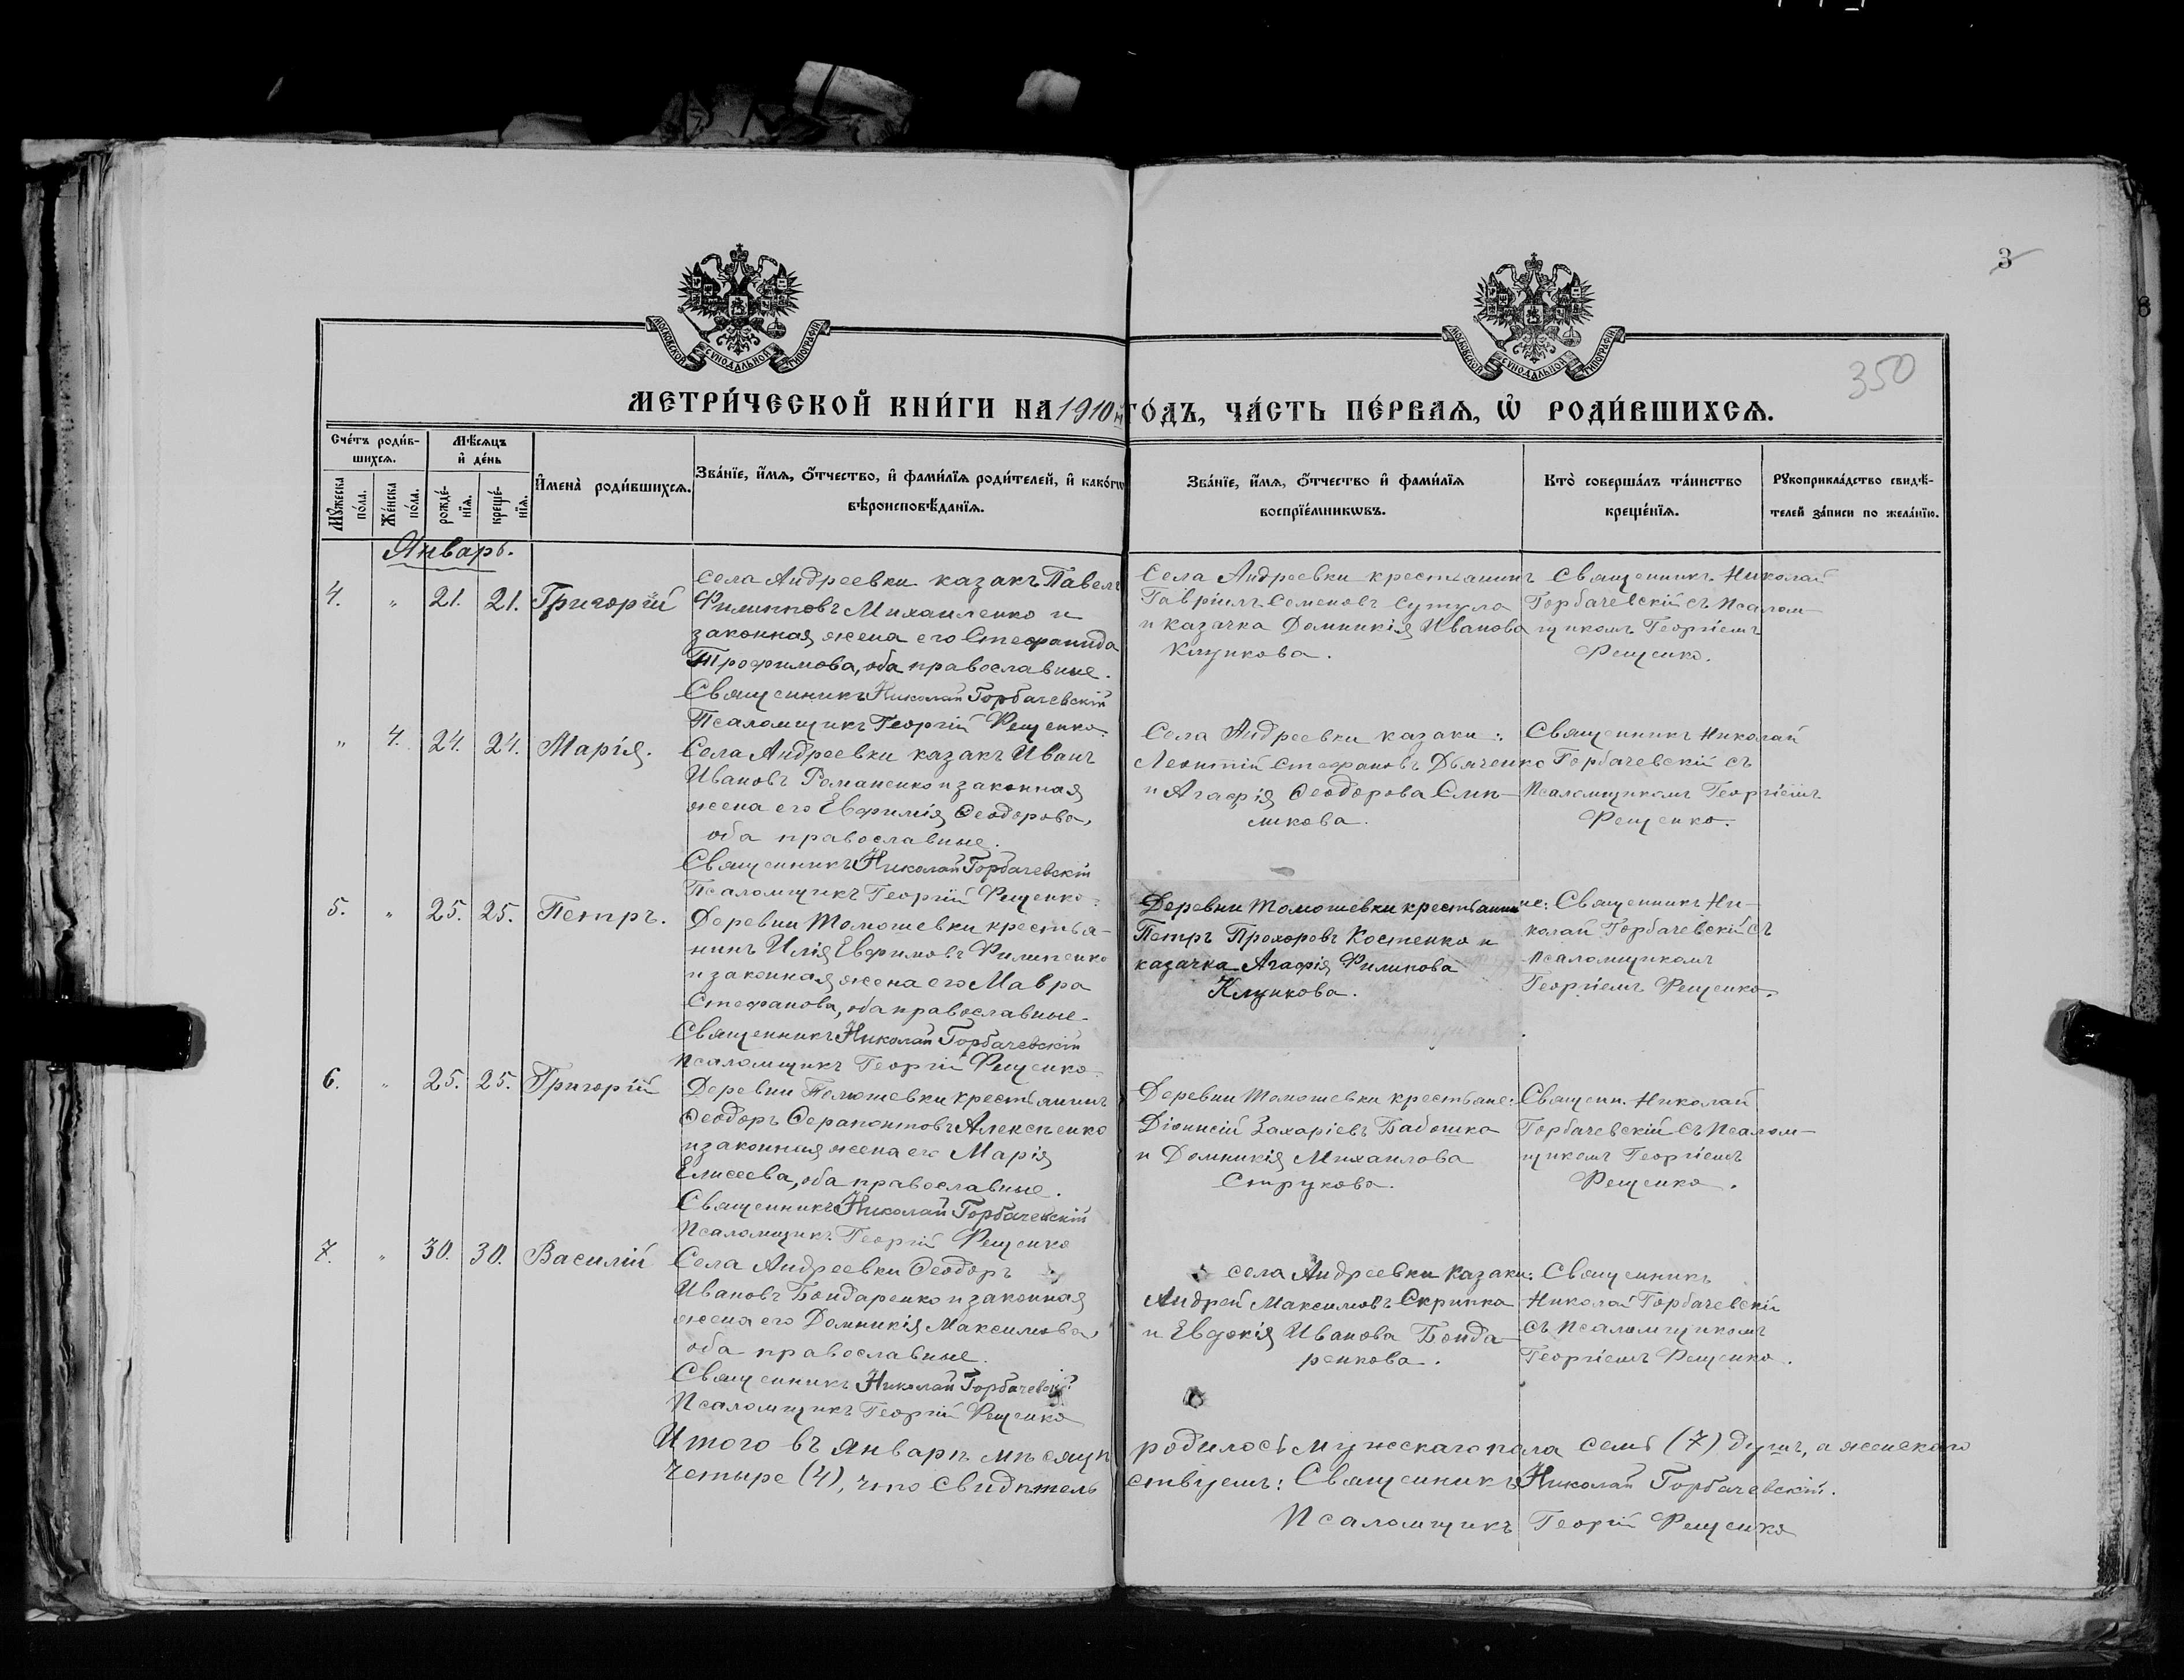 3
350
МОСКОВСКОЙ СѴНОДАЛЬНОЙ ТИПОГРАФІИ
МОСКОВСКОЙ СѴНОДАЛЬНОЙ ТИПОГРАФІИ
МЕТРИ́ЧЕСКОЙ КНИ́ГИ НА 1910 й ГО́ДЪ, ЧА́СТЬ ПЕ́РВАѦ, Ѡ҆ РОДИ́ВШИХСѦ.
Сче́тъ роди́в-
шихсѧ.
Мꙋ́жеска
по́ла.
Же́нска
по́ла.
Мѣ́сѧцъ
и҆ де́нь
рожде́-
нїѧ.
креще́-
нїѧ.
И҆мена̀ роди́вшихсѧ.
Зва́нїе, и҆́мѧ, ѻ҆́тчество, и҆ фами́лїѧ роди́телей, и҆ како́гѡ
вѣроисповѣ́данїѧ.
Зва́нїе, и҆́мѧ, ѻ҆́тчество и҆ фами́лїѧ
воспрїе́мникѡвъ.
Кто̀ соверша́лъ та́инство
креще́нїѧ.
Рꙋкоприкла́дство свидѣ́-
телей за́писи по жела́нїю.
Январь.
4. " 21. 21. Григорій
Села Андреевки казакъ Павелъ
Филипповъ Михаиленко и
законная жена его Стефанида
Трофимова, оба православные.
Священникъ Николай Горбачевскій
Псаломщикъ Георгій Рещенко.
Села Андреевки крестьянинъ
Гавріилъ Семеновъ Сутула
и казачка Домникія Иванова
Клщикова.
Священникъ Николай
Горбачевскій съ Псалом-
щикомъ Георгіемъ
Рещенко.
" 4. 24. 24. Марія.
Села Андреевки казакъ Иванъ
Ивановъ Романенко и законная
жена его Евфимія Ѳеодорова,
оба православные.
Священникъ Николай Горбачевскій
Псаломщикъ Георгій Рещенко.
Села Андреевки казаки:
Леонтій Стефановъ Дьяченко
и Агафія Ѳеодорова Слип-
ликова.
Священникъ Николай
Горбачевскій съ
Псаломщикомъ Георгіемъ
Рещенко.
5. " 25. 25. Петръ.
Деревни Томошевки крестья-
нинъ Илія Евфимовъ Филипенко
и законная жена его Мавра
Стефанова, оба православные.
Священникъ Николай Горбачевскій
Псаломщикъ Георгій Рещенко.
Деревни Томошевки крестьяне:
Петръ Прохоровъ Костенко и
казачка Агафія Филипова
Клщикова.
Священникъ Ни-
колай Горбачевскій съ
Псаломщикомъ
Георгіемъ Рещенко.
6. " 25. 25. Григорій
Деревни Томошевки крестьянинъ
Ѳеодоръ Ѳерапонтовъ Алексѣенко
и законная жена его Марія
Елисеева, оба православные.
Священникъ Николай Горбачевскій
Псаломщикъ Георгій Рещенко
Деревни Томошевки крестьяне:
Діонисій Захаріевъ Бабошка
и Домникія Михаилова
Струкова.
Священн. Николай
Горбачевскій съ Псалом-
щикомъ Георгіемъ
Рещенко.
7. " 30. 30. Василій
Села Андреевки Ѳеодоръ
Ивановъ Бондаренко и законная
жена его Домникія Максимова,
оба православные.
Священникъ Николай Горбачевскій
Псаломщикъ Георгій Рещенко
села Андреевки казаки:
Андрей Максимовъ Скрипка
и Евдокія Иванова Бонда-
ренкова.
Священникъ
Николай Горбачевскій
съ Псаломщикомъ
Георгіемъ Рещенко.
Итого въ Январѣ мѣсяцѣ родилось мужескаго пола семь (7) душъ, а женскаго
четыре (4), что свидѣтельствуемъ: Священникъ Николай Горбачевскій.
Псаломщикъ Георгій Рещенко